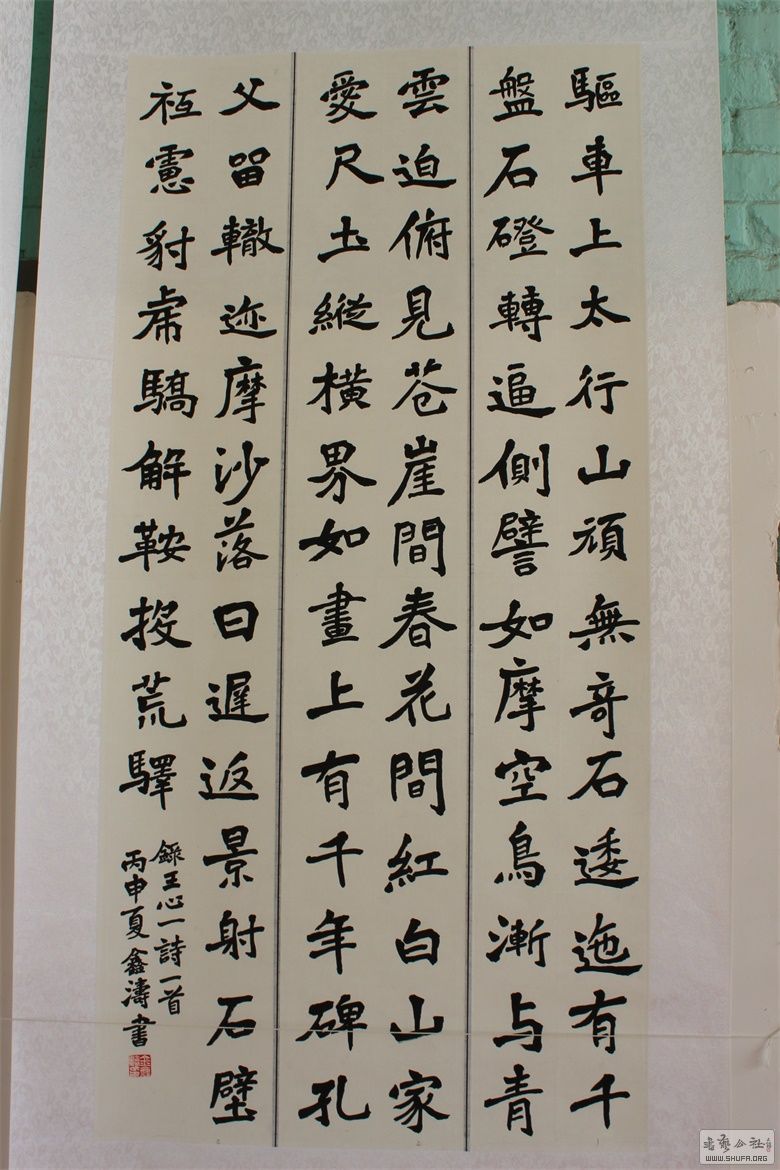 驅車上太行山頑無奇石逶迤有千
盤石磴轉逼側譬如摩空鳥漸与青
雲迫俯見苍崖間春花間紅白山家
愛尺土縱横界如畫上有千年碑孔
父留轍迹摩沙落日遲返景射石壁
祗慮豺虎驕解鞍投荒驛
錄王心一詩一首
丙申夏鑫濤書
书艺公社
WWW.SHUFA.ORG